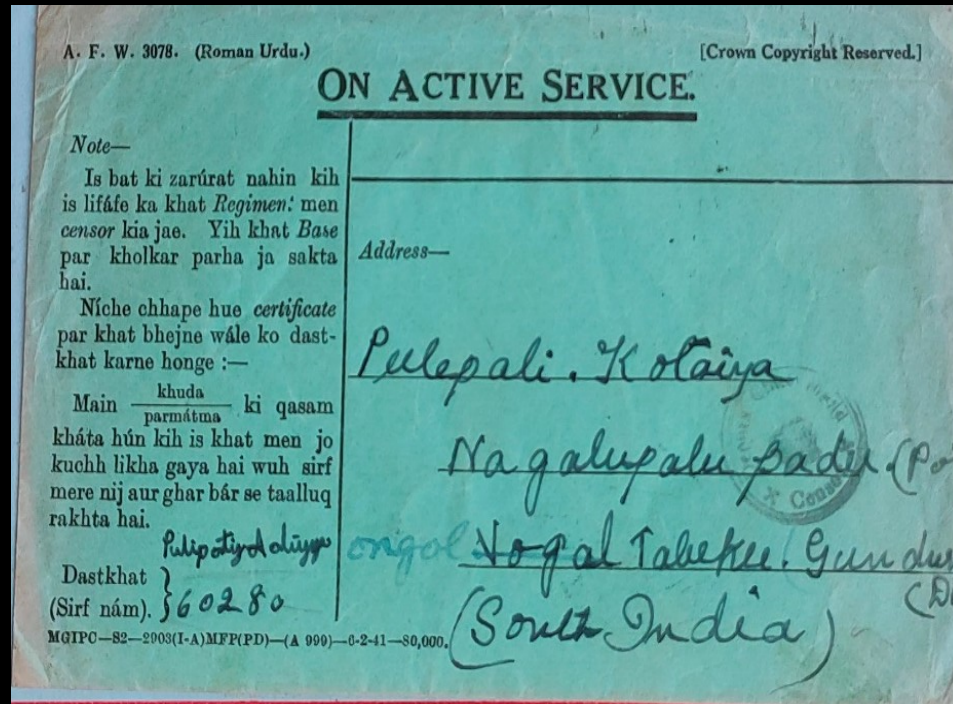 A. F. W. 3078. (Roman Urdu.)
[Crown Copyright Reserved.]
ON ACTIVE SERVICE.
Note—
Is bat ki zarúrat nahin kih
is lifáfe ka khat Regimen: men
censor kia jae. Yih khat Base
par kholkar parha ja sakta
hai.
Níche chhape hue certificate
par khat bhejne wále ko dast-
khat karne honge :—
Main khuda
parmátma ki qasam
kháta hún kih is khat men jo
kuchh likha gaya hai wuh sirf
mere nij aur ghar bár se taalluq
rakhta hai.
Dastkhat
(Sirf nám). } 60280
MGIPC—S2—2903(I-A)MFP(PD)—(A 999)—6-2-41—80,000.
Address—
Pulepali. Kotaiya
Nagalupalu padu. (Po
ongol Vogal Taluku. Gundur
(D
(South India)